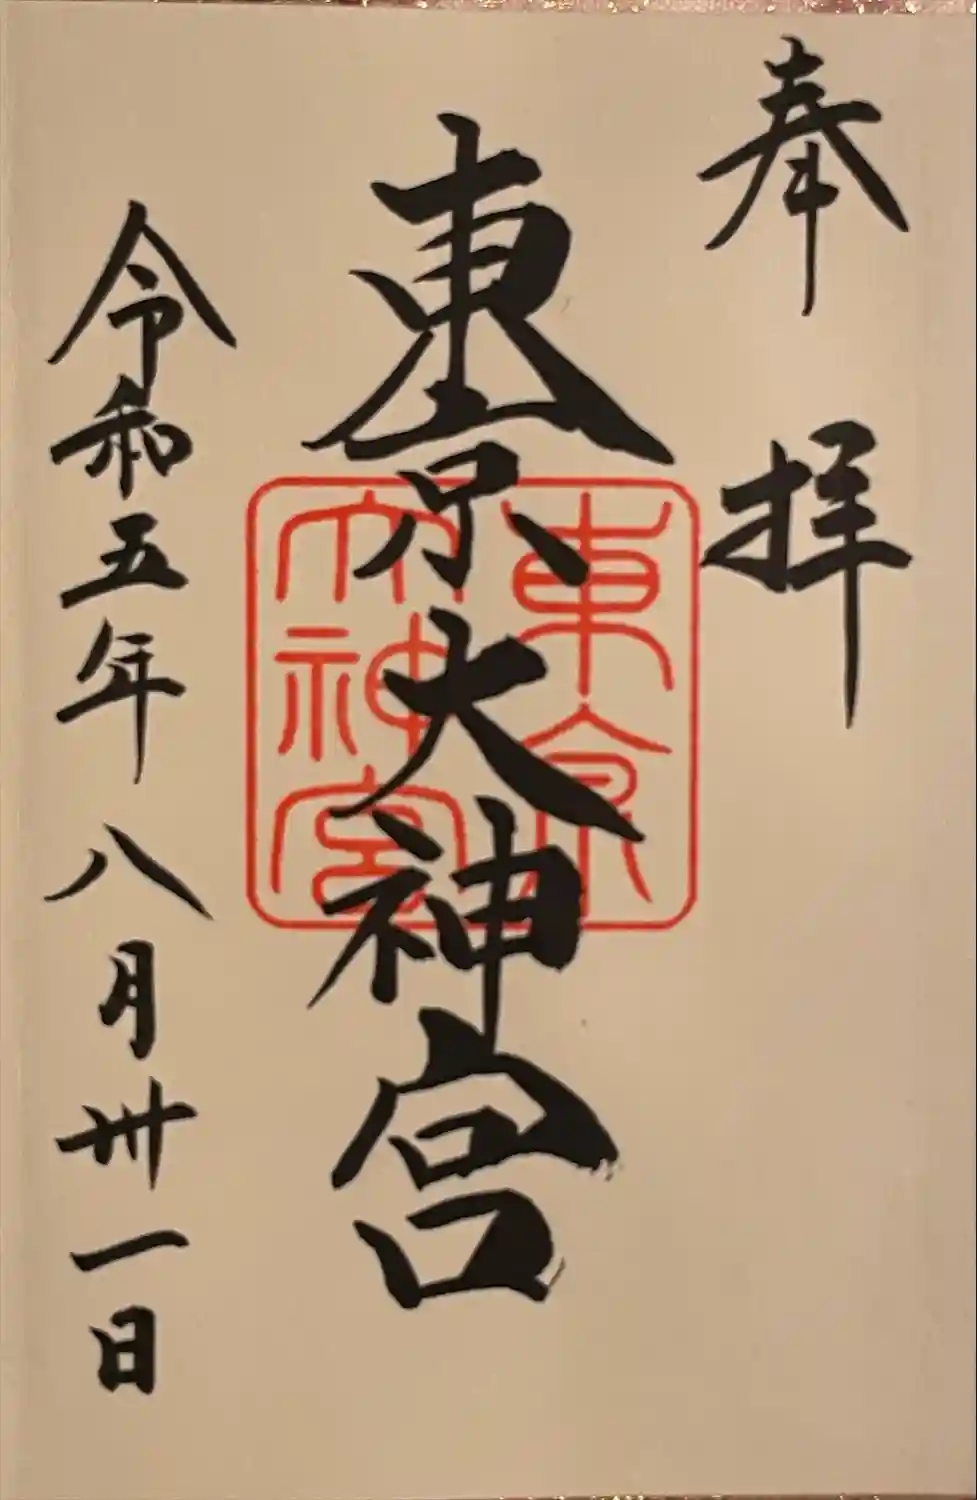 奉拝
東京大神宮
東京大神宮
令和五年八月卅一日